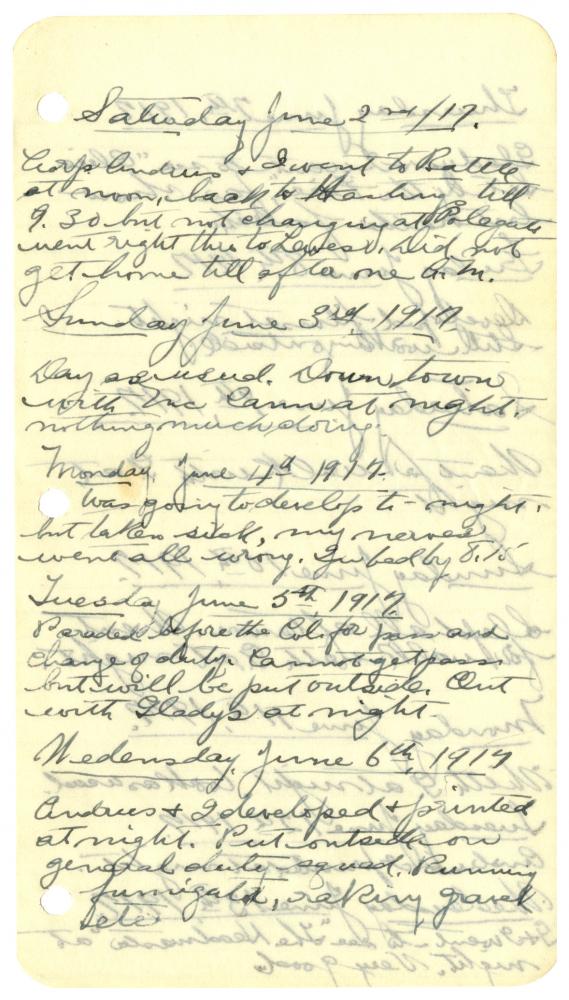 Saturday June 2nd/17.
Corp Andrus & I went to Battle
at noon, back to Hastings till
9.30 but not changing at Polegate
went right thro to Lewes. Did not
get home till after one A.M.
Sunday June 3rd, 1917
Day as usual. Down town
with Mc Cann at night.
nothing much doing.
Monday, June 4th 1917.
Was going to develop to-night.
but taken sick, my nerves
went all wrong. In bed by 8.15
Tuesday June 5th, 1917.
Paraded before the Col. for pass and
change of duty. Cannot get pass
but will be put outside. Out
with Gladys at night
Wedensday, June 6th, 1917
Andrus & I developed & printed
at night. Put outside on
general duty squad. Running
fumigator, raking gravel
etc